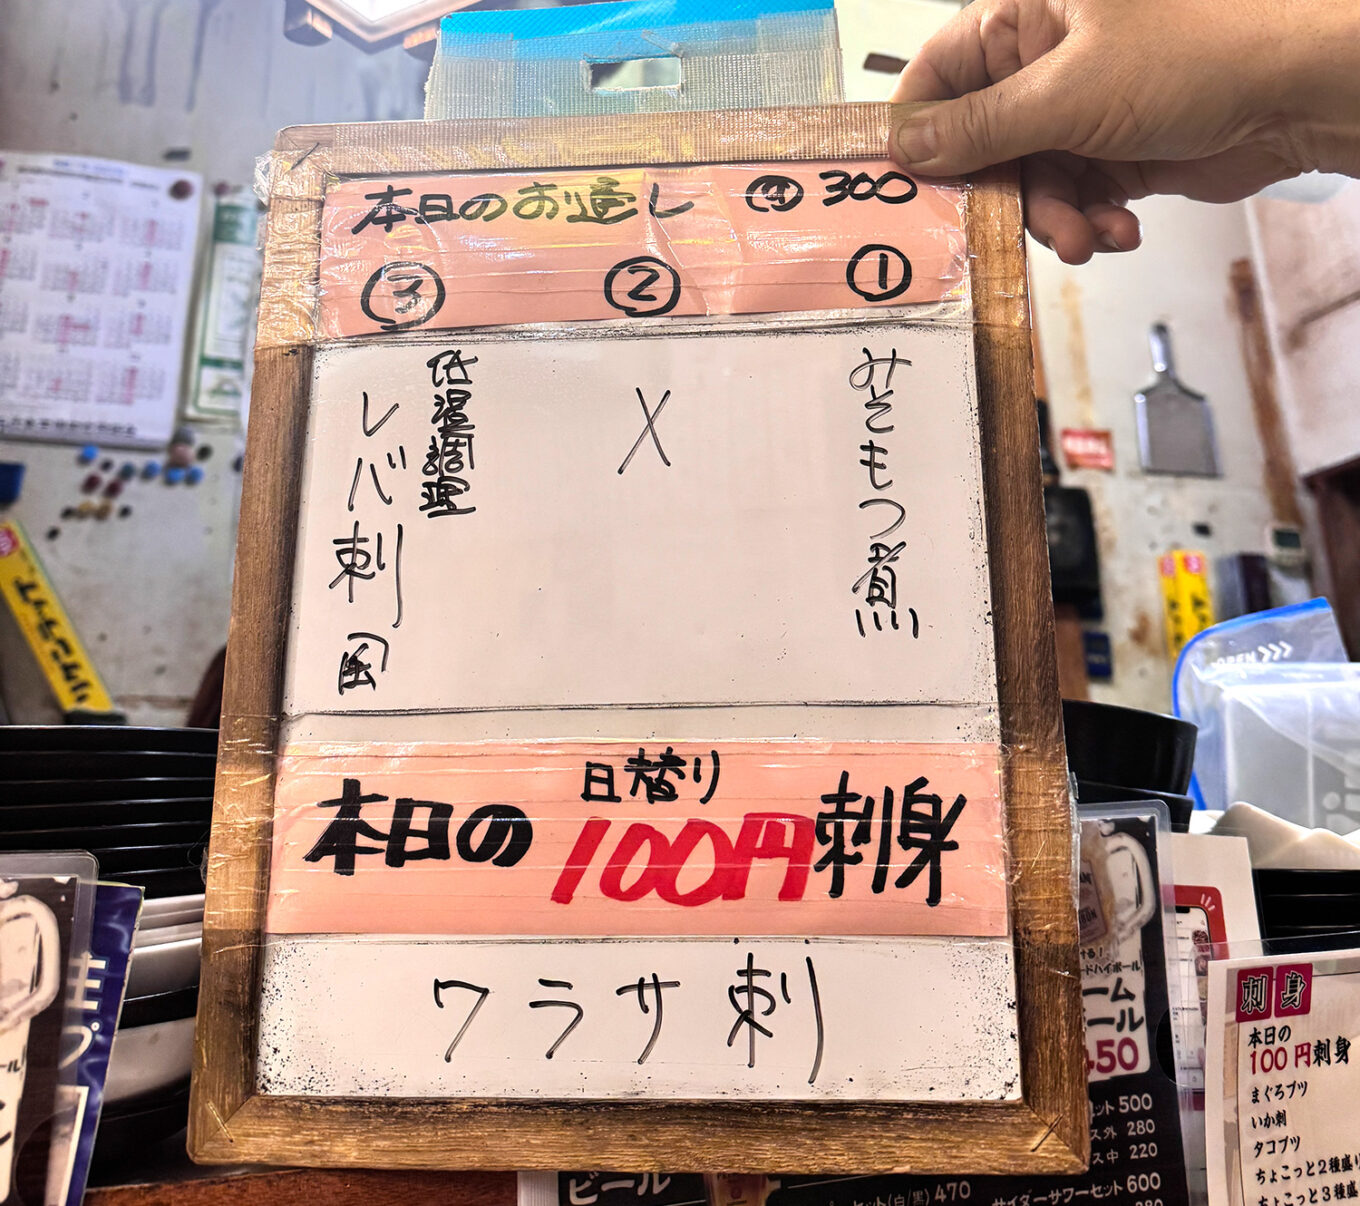 本日のお通し ㊞ 300
①
みそもつ煮
②
X
③
低温調理
レバ刺風
本日の
日替り
100円刺身
ワラサ刺
刺身
本日の
100円刺身
まぐろブツ
いか刺
タコブツ
ちょこっと2種盛り
ちょこっと3種盛
ードハイボール
ーム
ール
450
ット 500
ス外 280
ス中 220
ビール
ット(白/黒) 470
サイダーサワーセット 600
OPEN >>>